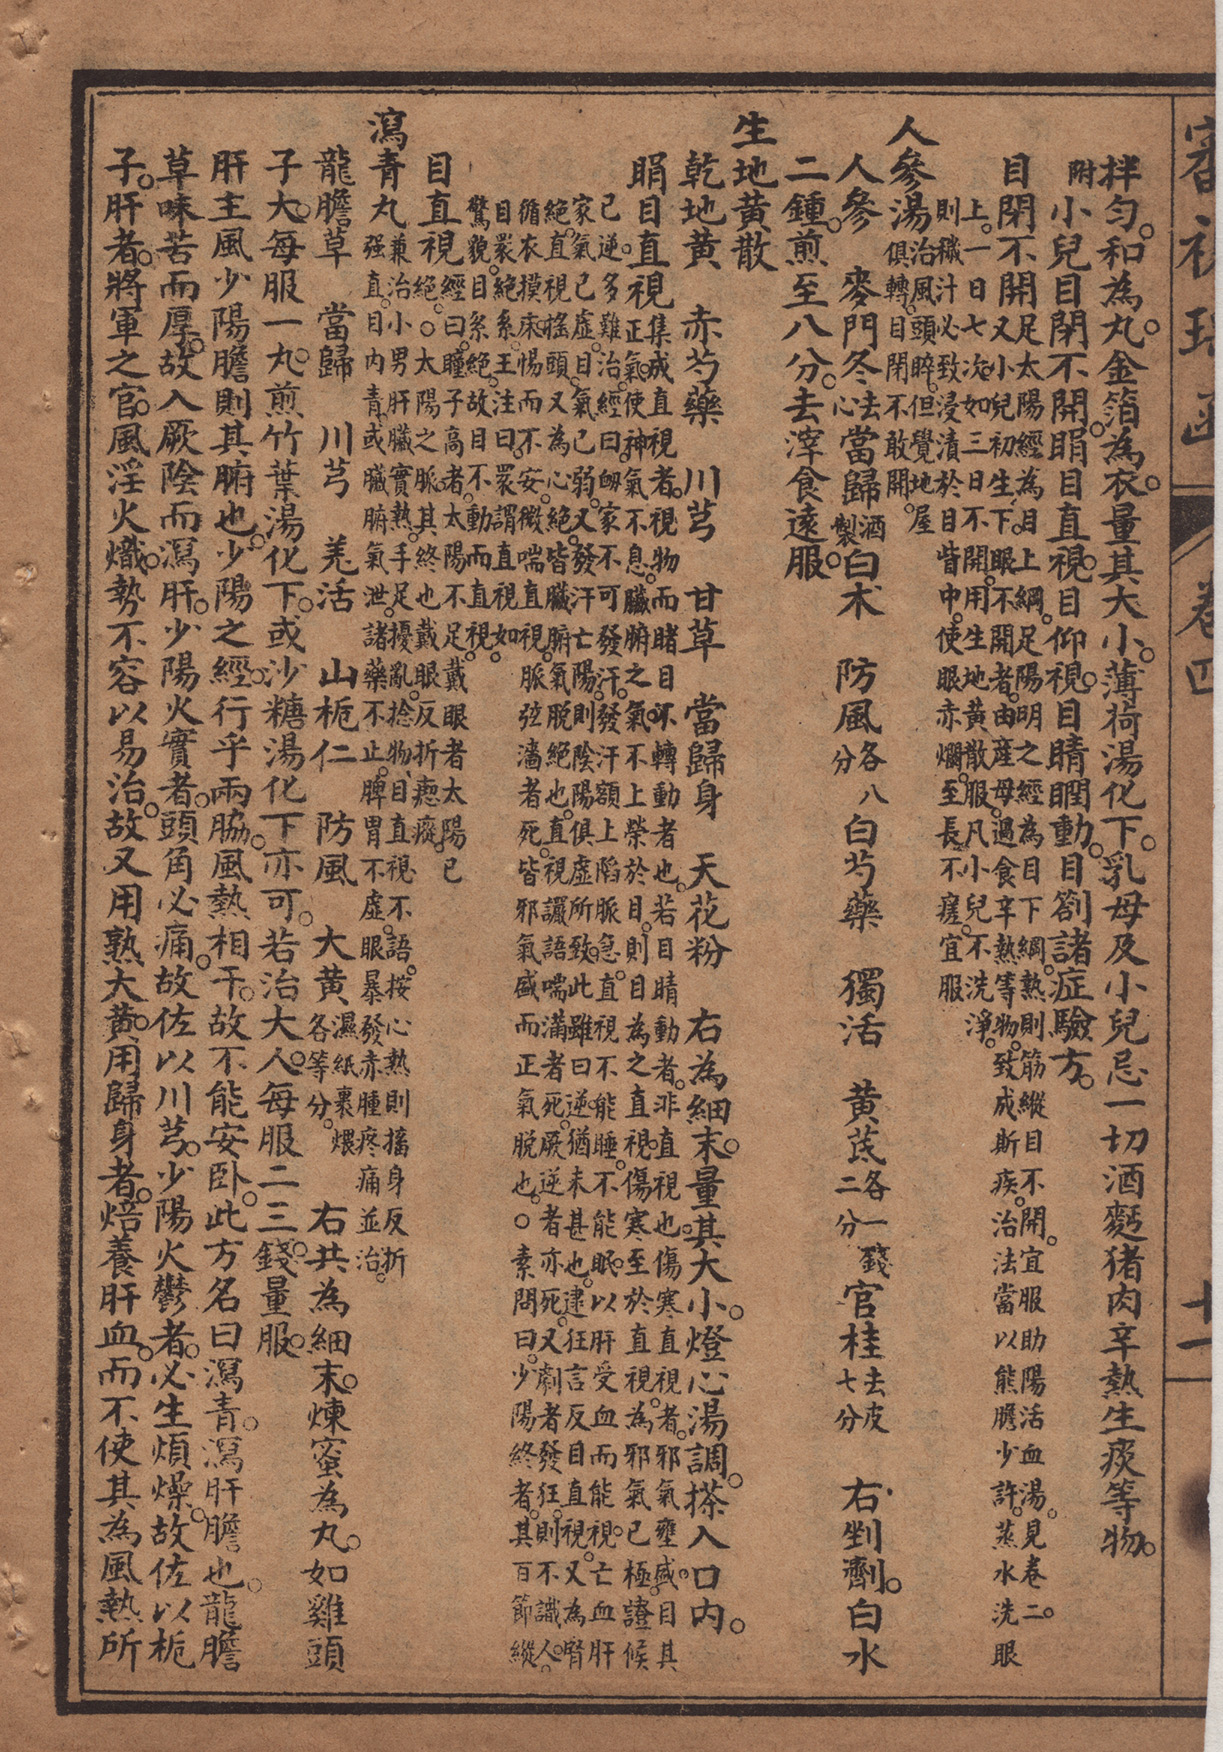 審視瑤函 卷四 十一
拌勻。和為丸。金箔為衣。量其大小。薄荷湯化下。乳母及小兒忌一切酒麪猪肉辛熱生痰等物。
附小兒目閉不開。睊目直視。目仰視。目睛瞤動。目劄諸症驗方。
目閉不開 足太陽經為目上綱。足陽明之經為目下綱。熱則筋縱目不開。宜服助陽活血湯。見卷二。
又小兒初生下。眼不開者。由產母過食辛熱等物。致成斯疾。治法當以熊膽少許。蒸水洗眼
上。一日七次。如三日不開。用生地黃散服。凡小兒不洗淨。
則穢汁必致浸漬於目眥中。使眼赤爛。至長不瘥。宜服
人參湯 治風頭睟。但覺地屋
俱轉。目閉不敢開。
人參 麥門冬去心 當歸酒製 白朮 防風各八分 白芍藥 獨活 黃芪各一錢二分 官桂去皮七分 右剉劑。白水
二鍾。煎至八分。去滓食遠服。
生地黃散
乾地黃 赤芍藥 川芎 甘草 當歸身 天花粉 右為細末。量其大小。燈心湯調。搽入口內。
睊目直視 集成直視者。視物而睹目不轉動者也。若目睛動者。非直視也。傷寒直視者。邪氣壅盛。目其
正氣使神氣不息。臟腑之氣不上榮於目。則目為之直視。傷寒至於直視。為邪氣已極。證候
已逆。多難治。經曰。衂家不可發汗。發汗額上陷脈急。直視不能睡。不能眠。以肝受血而能視。亡血肝
家氣已虛。目氣已弱。又發汗亡陽。則陰陽俱虛所致。此雖曰逆。猶未甚也。逮狂言反目直視。又為腎
絕。直視搖頭。又為心絕。皆臟腑氣脫絕也。直視讝語喘滿者死。厥逆者亦死。又劇者發狂。則不識人。
循衣摸床。惕而不安。微喘直視。脈弦濇者死。皆邪氣盛而正氣脫也。○素問曰。少陽終者。其百節縱
目睘絕系。王注曰。睘謂直視如
驚貌。目系絕。故目不動而直視。
目直視 經曰。瞳子高者。太陽不足。戴眼者太陽已
絕。○太陽之脈。其終也。戴眼反折瘛瘲。
瀉青丸 兼治小男肝臟實熱。手足擾亂。捻物。目直視。不語。按心熱則搐。身反折
强直。目內青。或臟腑氣泄。諸藥不止。脾胃不虛。眼暴發赤腫疼痛並治。
龍膽草 當歸 川芎 羌活 山梔仁 防風 大黃濕紙裹煨各等分。 右共為細末。煉蜜為丸。如雞頭
子大。每服一丸。煎竹葉湯化下。或沙糖湯化下亦可。若治大人。每服二三錢。量服。
肝主風。少陽膽則其腑也。少陽之經。行乎兩脇。風熱相干。故不能安臥。此方名曰瀉青。瀉肝膽也。龍膽
草味苦而厚。故入厥陰而瀉肝。少陽火實者。頭角必痛。故佐以川芎。少陽火鬱者。必生煩燥。故佐以梔
子。肝者。將軍之官。風淫火熾。勢不容以易治。故又用熟大黃。用歸身者。焙養肝血。而不使其為風熱所